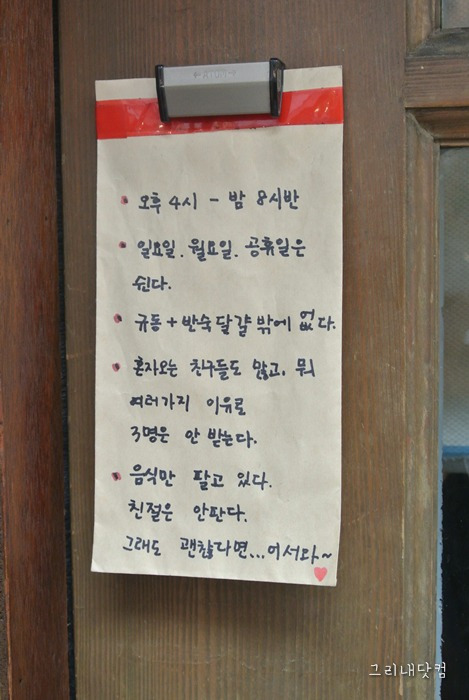 • 오후 4시 - 밤 8시반
• 일요일. 월요일. 공휴일은
쉰다.
• 규동 + 반숙달걀 밖에 없다.
• 혼자오는 친구들도 많고, 뭐
여러가지 이유로
3명은 안 받는다.
• 음식만 팔고 있다.
친절은 안판다.
그래도 괜찮다면...어서와~
그리내닷컴